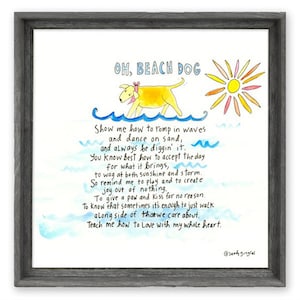 OH, BEACH DOG
Show me how to romp in waves
and dance on sand,
and always be diggin' it.
You know best how to accept the day
for what it brings,
to wag at both sunshine and storm.
So remind me to play and to create
joy out of nothing.
To give a paw and kiss for no reason.
To know that sometimes it's enough to just walk
along side of those we care about.
Teach me how to Love with my whole heart.